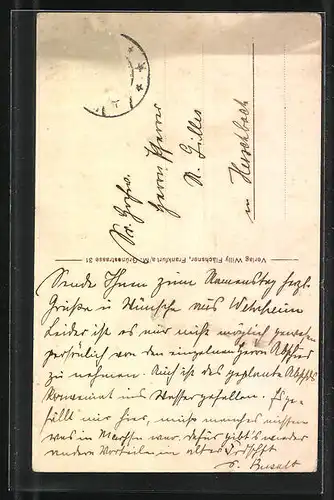 Sr. Hochw.
Herrn Pfarrer
N. Gilles
in Herschbach
Verlag Willy Flachsner, Frankfurt a/M. Grünestrasse 31
Sende Ihnen zum Namenstag herzl.
Grüße u Wünsche aus Wehrheim
Leider ist es mir nicht möglich gewesen
persönlich von den einzelnen Herrn Abschied
zu nehmen. Auch ist das geplante Abschds
Konveniat ins Wasser gefallen. Es ge-
fällt mir hier, muß manches missen
was in war. dafür gibt's wieder
andere Vorteile. In alter